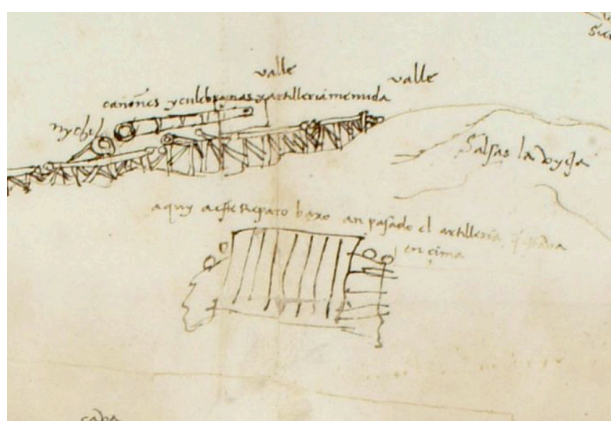 valle
valle
cañones y culebrinas y artilleria menuda
Salsas la vyeja
aquy a este Reparo baxo an pasado el artilleria
en çima
cava